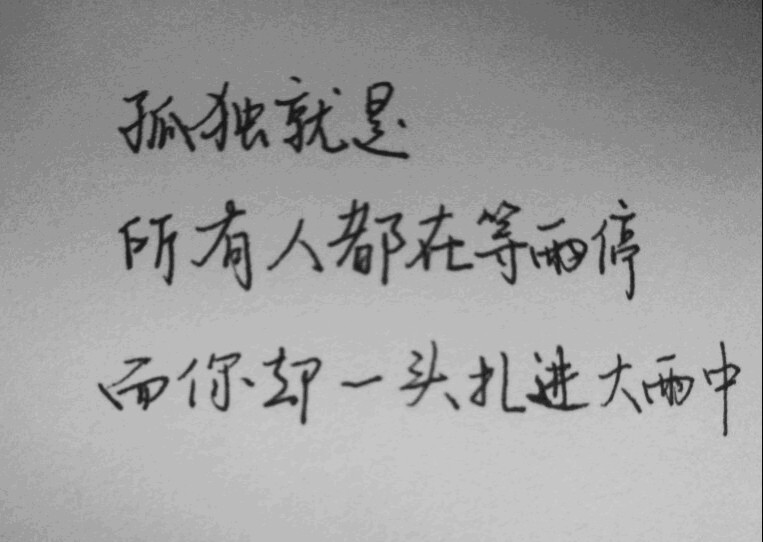 孤独就是
所有人都在等雨停
而你却一头扎进大雨中